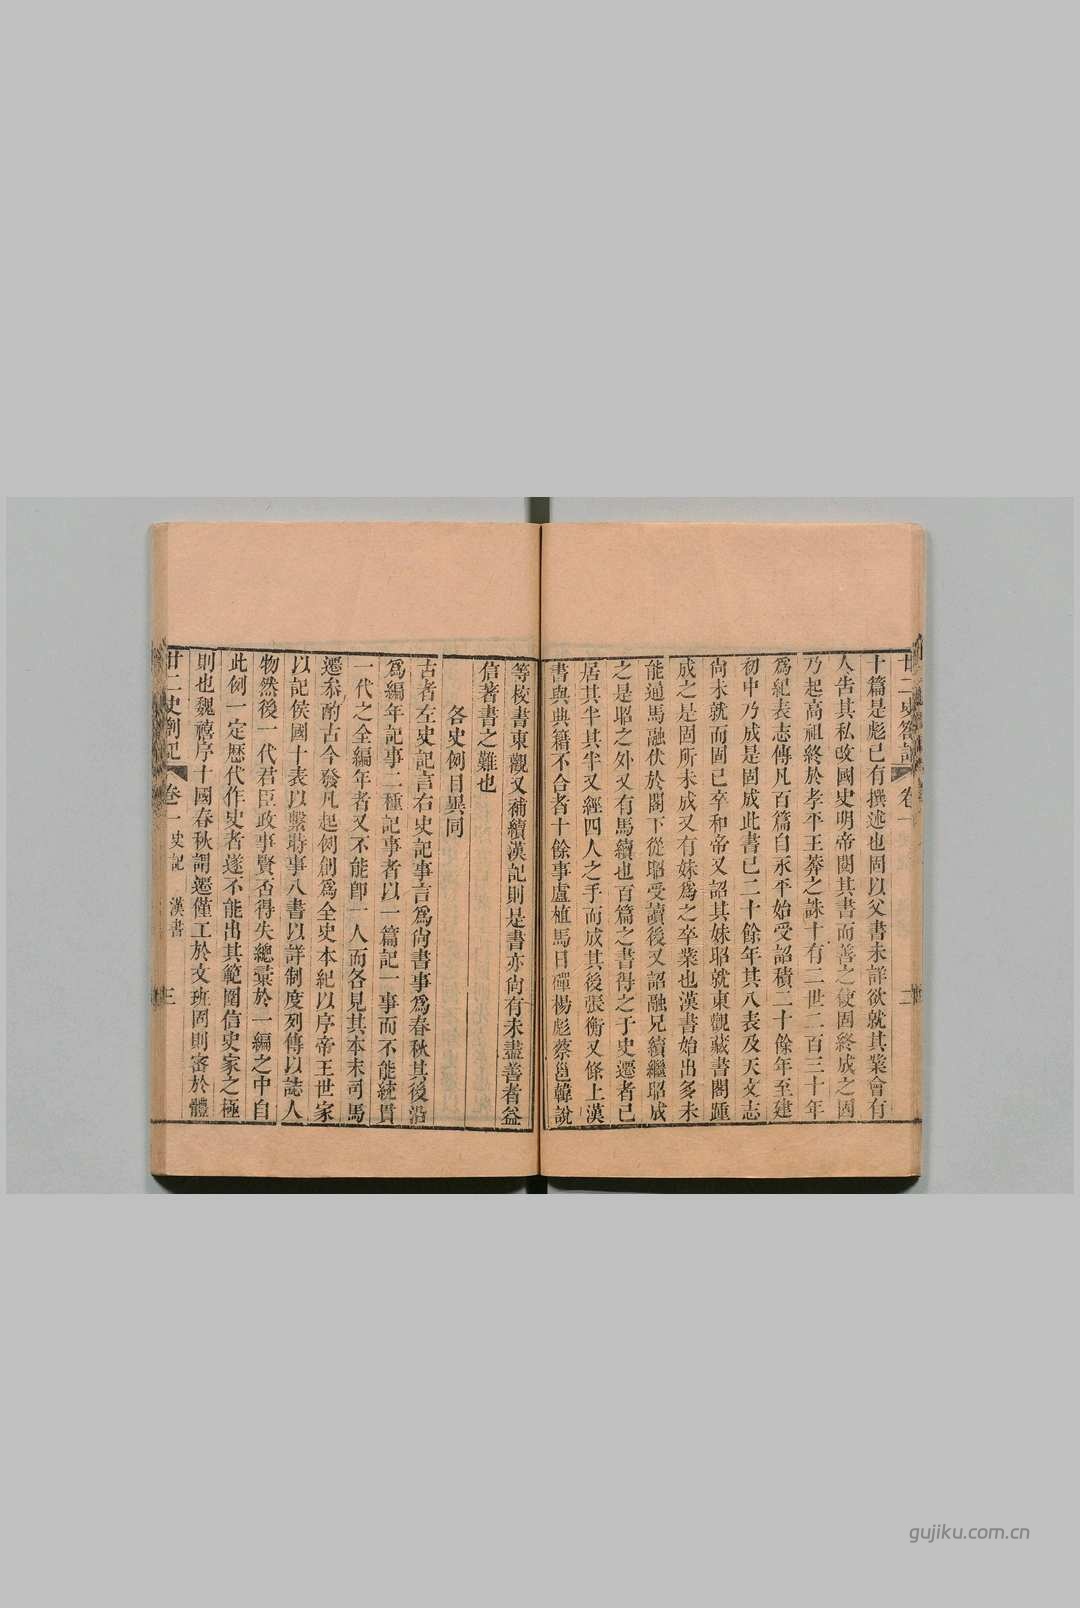 十篇是彪已有撰述也固以父書未詳欲就其業會有
人告其私改國史明帝閱其書而善之使固終成之固
乃起高祖終於孝平王莽之誅十有二世二百三十年
爲紀表志傳凡百篇自永平始受詔積二十餘年至建
初中乃成是固成此書已二十餘年其八表及天文志
尚未就而固已卒和帝又詔其妹昭就東觀藏書閣踵
成之是固所未成又有妹爲之卒業也漢書始出多未
能通馬融伏於閣下從昭受讀後又詔融兄續繼昭成
之是昭之外又有馬續也百篇之書得之于史遷者已
居其半其半又經四人之手而成其後張衡又條上漢
書與典籍不合者十餘事盧植馬日磾楊彪蔡邕韓說
等校書東觀又補續漢記則是書亦尚有未盡善者益
信著書之難也
各史例目異同
古者左史記言右史記事言爲尚書事爲春秋其後沿
爲編年記事二種記事者以一篇記一事而不能統貫
一代之全編年者又不能卽一人而各見其本末司馬
遷叅酌古今發凡起例創爲全史本紀以序帝王世家
以記侯國十表以繫時事八書以詳制度列傳以誌人
物然後一代君臣政事賢否得失總彙於一編之中自
此例一定歷代作史者遂不能出其範圍信史家之極
則也魏禧序十國春秋謂遷僅工於文班固則密於體
廿二史劄記 卷一 史記 漢書 三
gujiku.com.cn